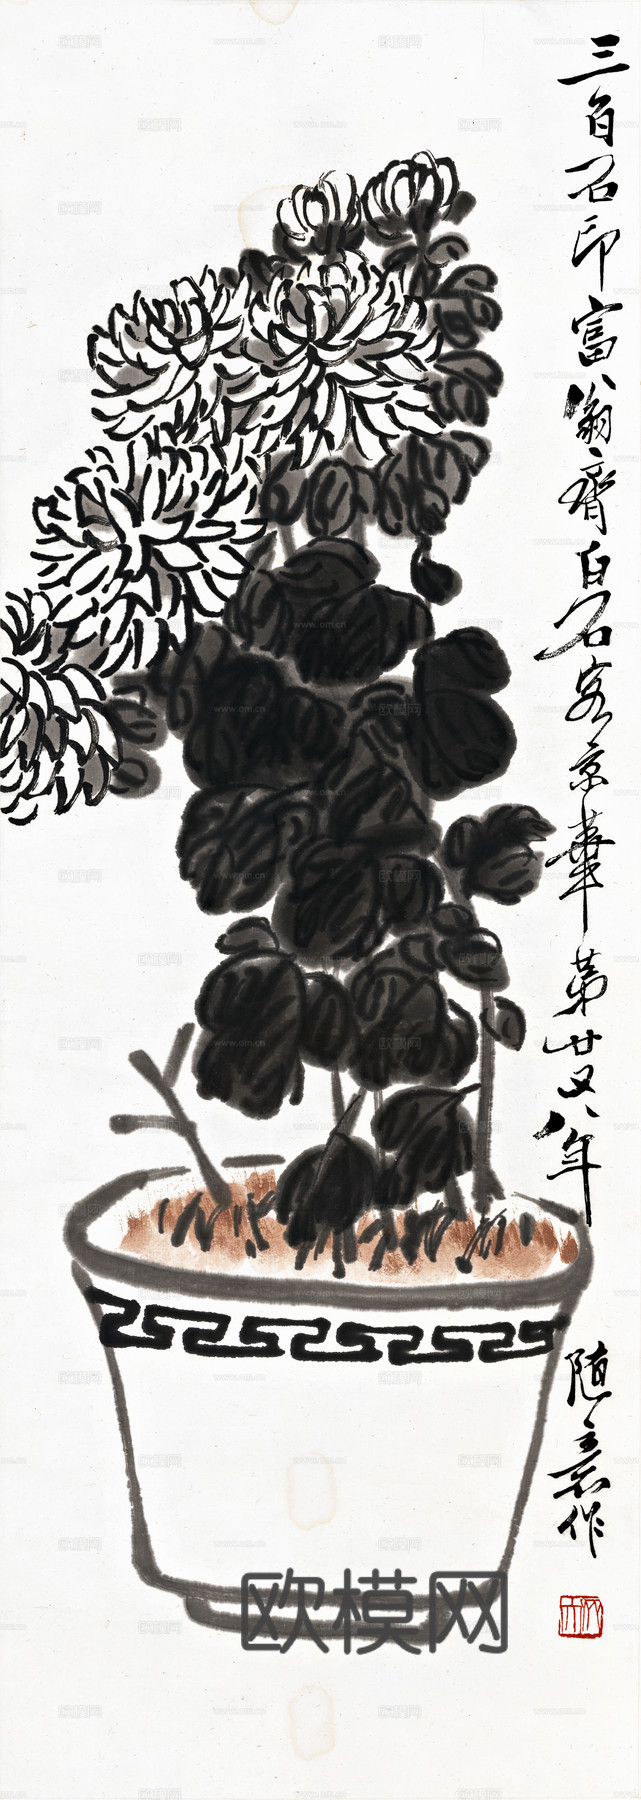 三百石印富翁齊白石客京華第廿又八年
隨意作
欧模网
www.om.cn